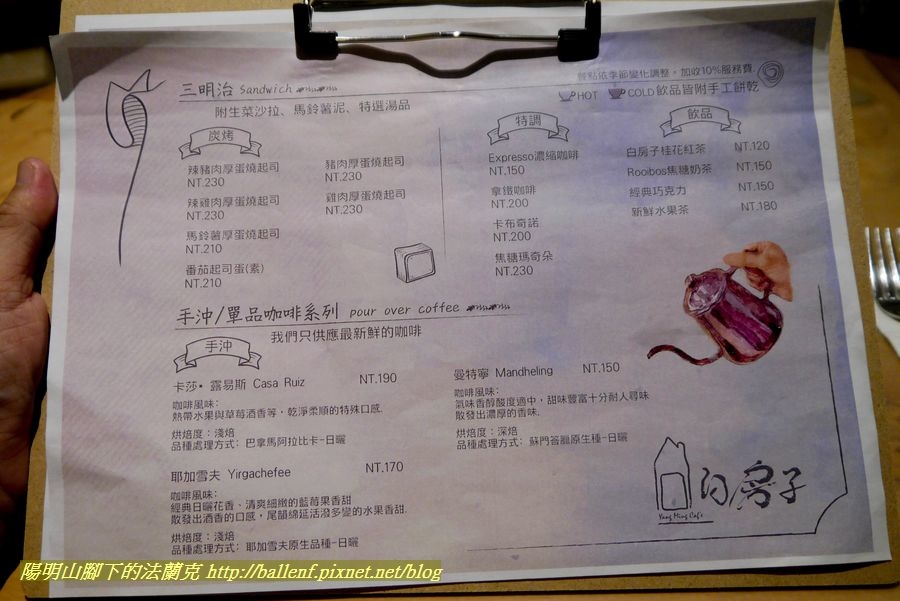 三明治 Sandwich
附生菜沙拉、馬鈴薯泥、特選湯品
炭烤
辣豬肉厚蛋燒起司
NT.230
豬肉厚蛋燒起司
NT.230
辣雞肉厚蛋燒起司
NT.230
雞肉厚蛋燒起司
NT.230
馬鈴薯厚蛋燒起司
NT.210
番茄起司蛋(素)
NT.210
餐點依季節變化調整。加收10%服務費.
HOT COLD 飲品皆附手工餅乾
特調
Expresso濃縮咖啡
NT.150
拿鐵咖啡
NT.200
卡布奇諾
NT.200
焦糖瑪奇朵
NT.230
飲品
白房子桂花紅茶 NT.120
Rooibos焦糖奶茶 NT.150
經典巧克力 NT.150
新鮮水果茶 NT.180
手沖/單品咖啡系列 pour over coffee
我們只供應最新鮮的咖啡
手沖
卡莎•露易斯 Casa Ruiz NT.190
咖啡風味:
熱帶水果與草莓酒香等，乾淨柔順的特殊口感.
烘焙度：淺焙
品種處理方式: 巴拿馬阿拉比卡-日曬
耶加雪夫 Yirgachefee NT.170
咖啡風味:
經典日曬花香、清爽細緻的藍莓果香甜
散發出酒香的口感，尾韻綿延活潑多變的水果香甜.
烘焙度：淺焙
品種處理方式: 耶加雪夫原生品種-日曬
曼特寧 Mandheling NT.150
咖啡風味:
氣味香醇酸度適中，甜味豐富十分耐人尋味
散發出濃厚的香味.
烘焙度：深焙
品種處理方式: 蘇門答臘原生種-日曬
白房子
Yang Ming Cafe
陽明山腳下的法蘭克 http://ballenf.pixnet.net/blog